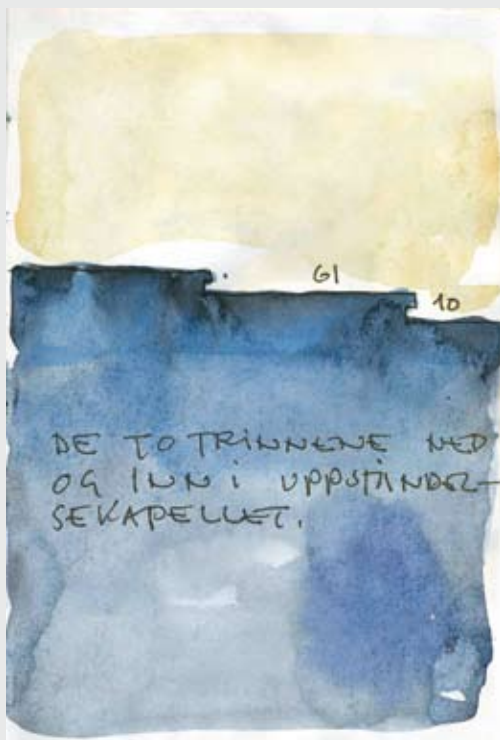 61
10
DE TO TRINNENE NED
OG INN I UPPSTÅNDEL-
SEKAPELLET.